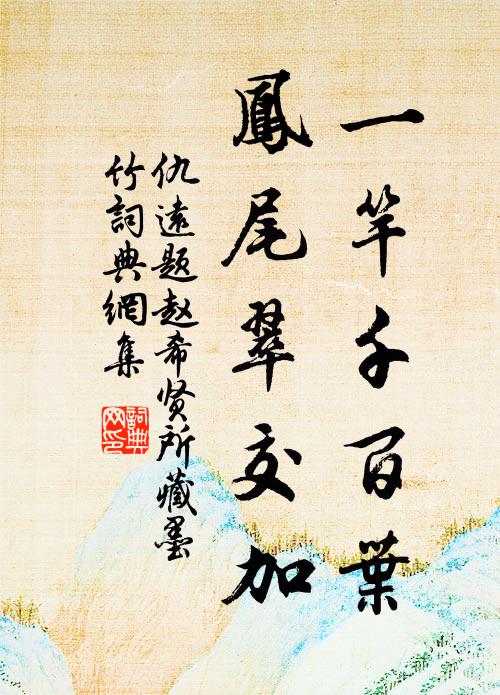 一竿千百葉
鳳尾翠交加
仇遠題赵希贤所藏墨
竹詞典網集
詞典
网印